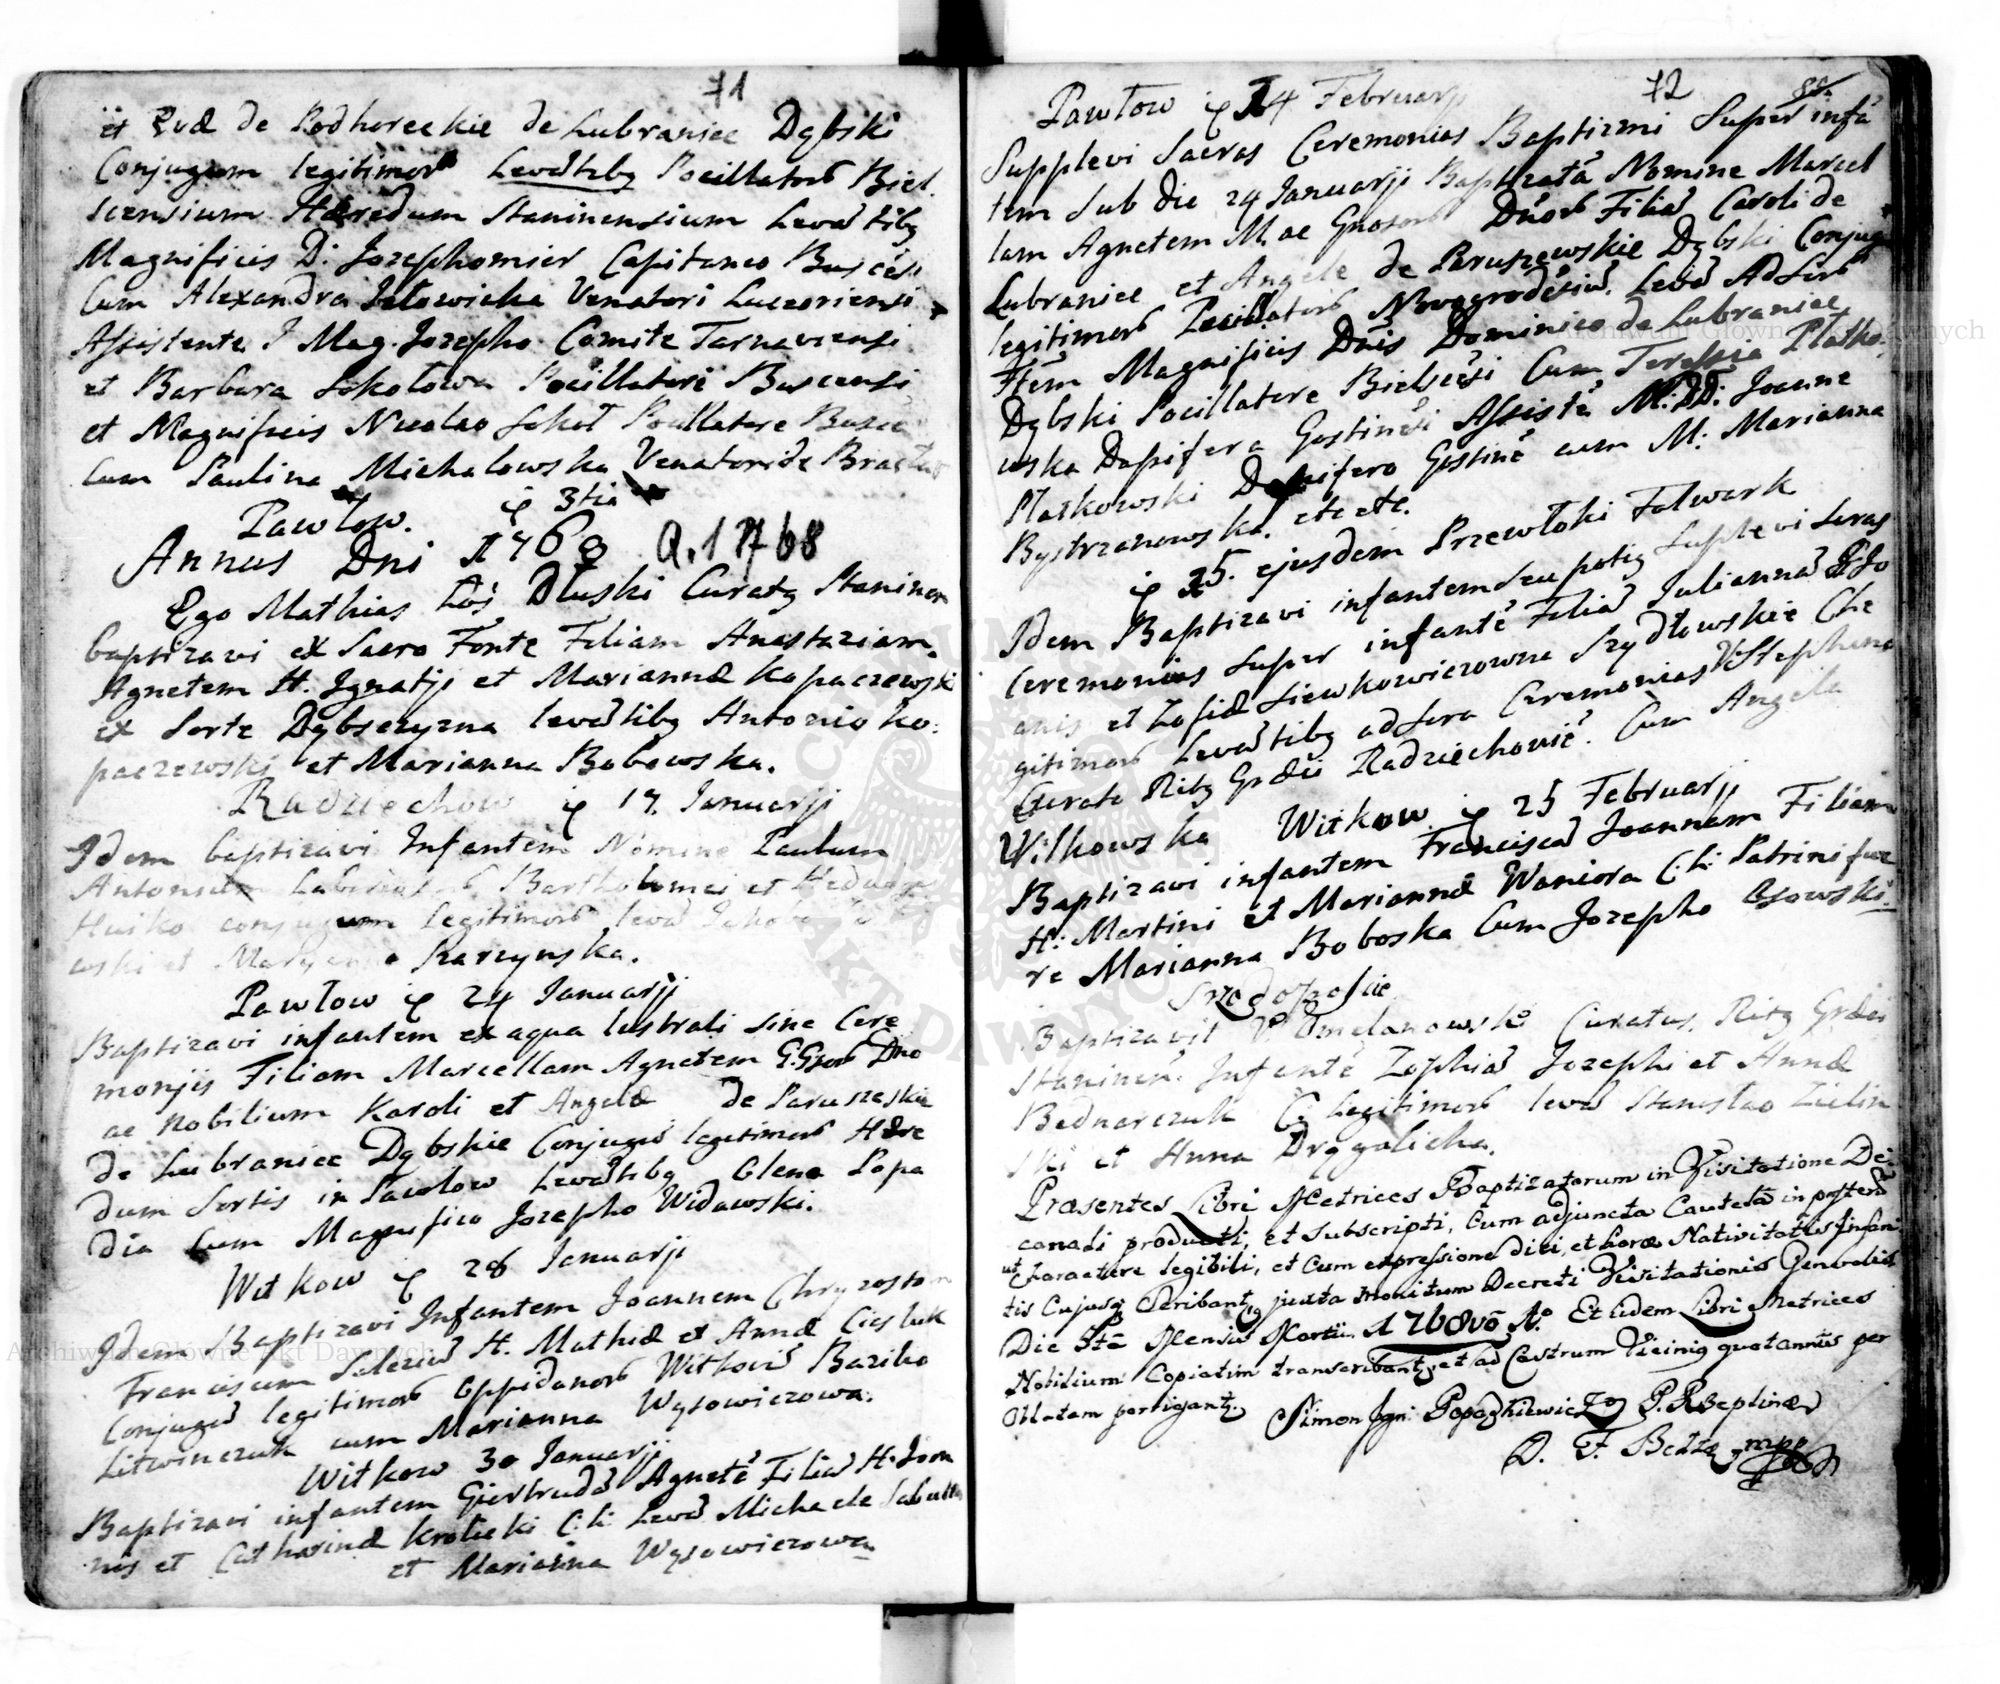 71
et Evæ de Podhoreckie de Lubraniec Dąbski
Conjugum legitimor Levātibq Pocillatorū Biel
scensium Hæredum Staninensium Levātibq
Magnificis D: Jozephomier Capitaneo Buscēsi
Cum Alexandra Jełowicka Venatori Luceoriensi
Assistente I Mag. Jozepho Comite Tarnaviensi
et Barbara Sokołowa Pocillatori Buscensi
et Magnificis Nicolao Sokoł Pocillatore Busce
Cum Paulina Michalowska Venatoride
Pawłow. 3tia
Annus Dni 1768 A. 1768
Ego Mathias Łoś Dłuski Curatq Staninen
baptizavi ex Sacro Fonte Filiam Anastaziam
Agnetem H. Ignatji et Mariannæ Kopaczewski
ex Sorte Dąbsczyzna levātibq Antonio Ko:
paczewski et Marianna Bobowska.
Radziechow 17. Januarji
Idem baptizavi Infantem Nomine Paulum
Antonium Bartholomei et Hedvigi
Husko conjugum legitimorū levā Jakobo
wski et Maryanna Karzynska.
Pawłow 24 Januarji
Baptizavi infantem ex aqua lustrali sine Cere
monjis Filiam Marcellam Agnetem G:Gnorū Dno
ac Nobilium Karoli et Angelæ de Paruszeskie
de Lubraniec Dąbskie Conjugū legitimorū Hære
dum Sortis in Pawlow Levātibq Olena Popa
dia Cum Magnifico Jozepho Widawski.
Witkow 28 Januarji
Idem Baptizavi Infantem Joannem Chryzostom
Franciscum Salezeū H. Mathiæ et Annæ Ciesluk
Conjugū legitimorū Oppidanorū Witkoviē Bazilio
Litwinczuk cum Marianna Wysowiczowa.
Witkow 30 Januarji
Baptizavi infantem Giertrudā Agnetē Filiā H: Joan
nis et Catharinæ Krolicki C:L: Levā Michaele
et Marianna Wysowiczowa
72
Pawłow 14 Februarji
Supplevi Sacras Ceremonias Baptizmi Super infā
tem Sub die 24 Januarji Baptizatā Nomine Marcel
lam Agnetem M. ac Gnosorū Dnorū Filiā Caroli de
Lubraniec et Angele de Paruszewskie Dąbski Conjug
legitimorū Pocillatorū Novogrodēsiū. Levā Ad Sac
Ftem Magnificis Dnis Dominico de Lubraniec
Dąbski Pocillatore Bielscēsi Cum Teressia Płatko
wska Dapifera Gostinēsi Assistē M: DD: Joanne
Płatkowski Dapifero Gostinē cum M: Marianna
Bystrzanowska. etc etc.
25. ejusdem Przewłoki Folwark
Idem Baptizavi infantem seu potiq Suplevi Sacras
Ceremonias Super infantē Filiā Juliannā
anis et Zofiæ Siewkowiczowne Szydłowskie
gitimorū Levātibq ad Sacra Ceremonias V: Stephano
Curato Ritq Græci Radziechoviē. Cum Angela
Witkowska Witkow 25 Februarji
Baptizavi infantem Franciscā Joannam Filiam
H: Martini et Mariannæ Waniora C:L: Patrini fue
re Marianna Boboska Cum Jozepho Osowski.
Srzodopolie
Baptizavit V. Omelanowski Curatus Ritq Græci
Staninen. Infantē Zophiā Jozephi et Annæ
Bednarczuk C Legitimorū levā Stanislao Zielin
ski et Anna Drygalicha.
Præsentes Libri Metrices Baptizatorum in Visitatione De
canali producti, et subscripti, Cum adjuncta Cautela in posterū
ut Charactere legibili, et Cum expressione diei, et horæ Nativitatis Infan
tis Cujusq Scribantq juxta monitum Decreti Visitationis Generalis
Die 3tā Mensis Martii 1768vo Ao. Et iidem Libri Metrices
Nobilium Copiatim transcribantq et ad Castrum Viciniq quotannis per
Oblatam porrigantq. Simon Ign:
D. F. Betta mpp